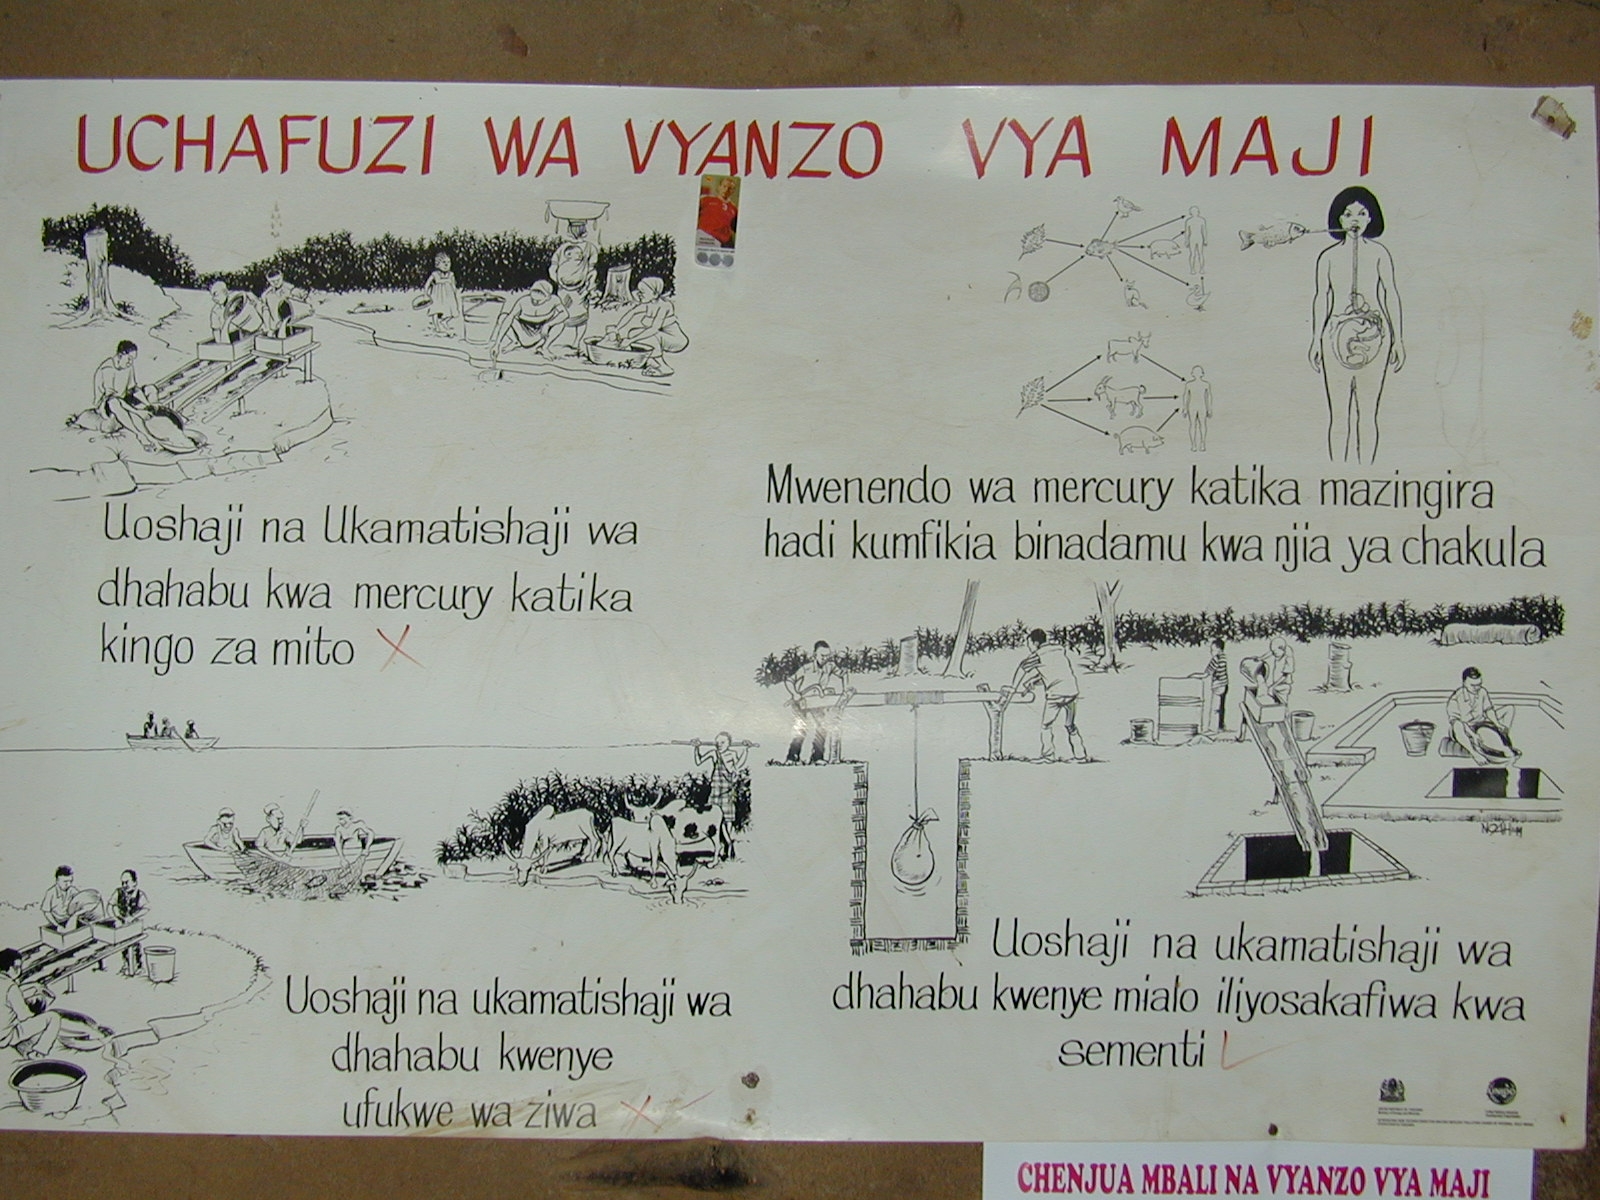 UCHAFUZI WA VYANZO VYA MAJI
Uoshaji na Ukamatishaji wa
dhahabu kwa mercury katika
kingo za mito X
Mwenendo wa mercury katika mazingira
hadi kumfikia binadamu kwa njia ya chakula
Uoshaji na ukamatishaji wa
dhahabu kwenye
ufukwe wa ziwa X
Uoshaji na ukamatishaji wa
dhahabu kwenye mialo iliyosakafiwa kwa
sementi
CHENJUA MBALI NA VYANZO VYA MAJI